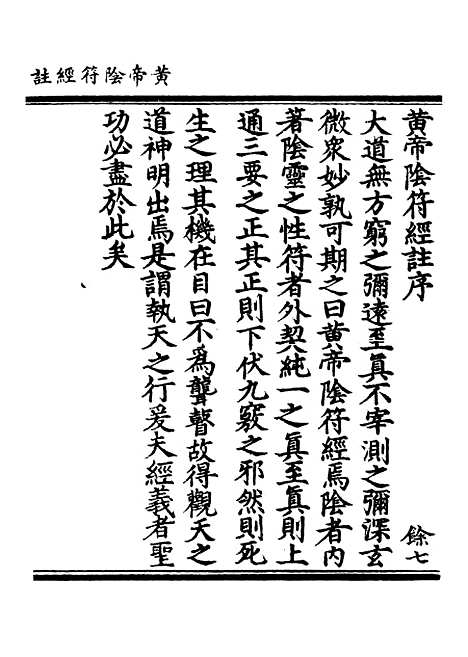 黃帝陰符經註
黃帝陰符經註序
餘七
大道無方窮之彌遠至真不宰測之彌深玄
微衆妙孰可期之曰黃帝陰符經焉陰者內
著陰靈之性符者外契純一之真至真則上
通三要之正其正則下伏九竅之邪然則死
生之理其機在目曰不爲聾瞽故得觀天之
道神明出焉是謂執天之行爰夫經義者聖
功必盡於此矣